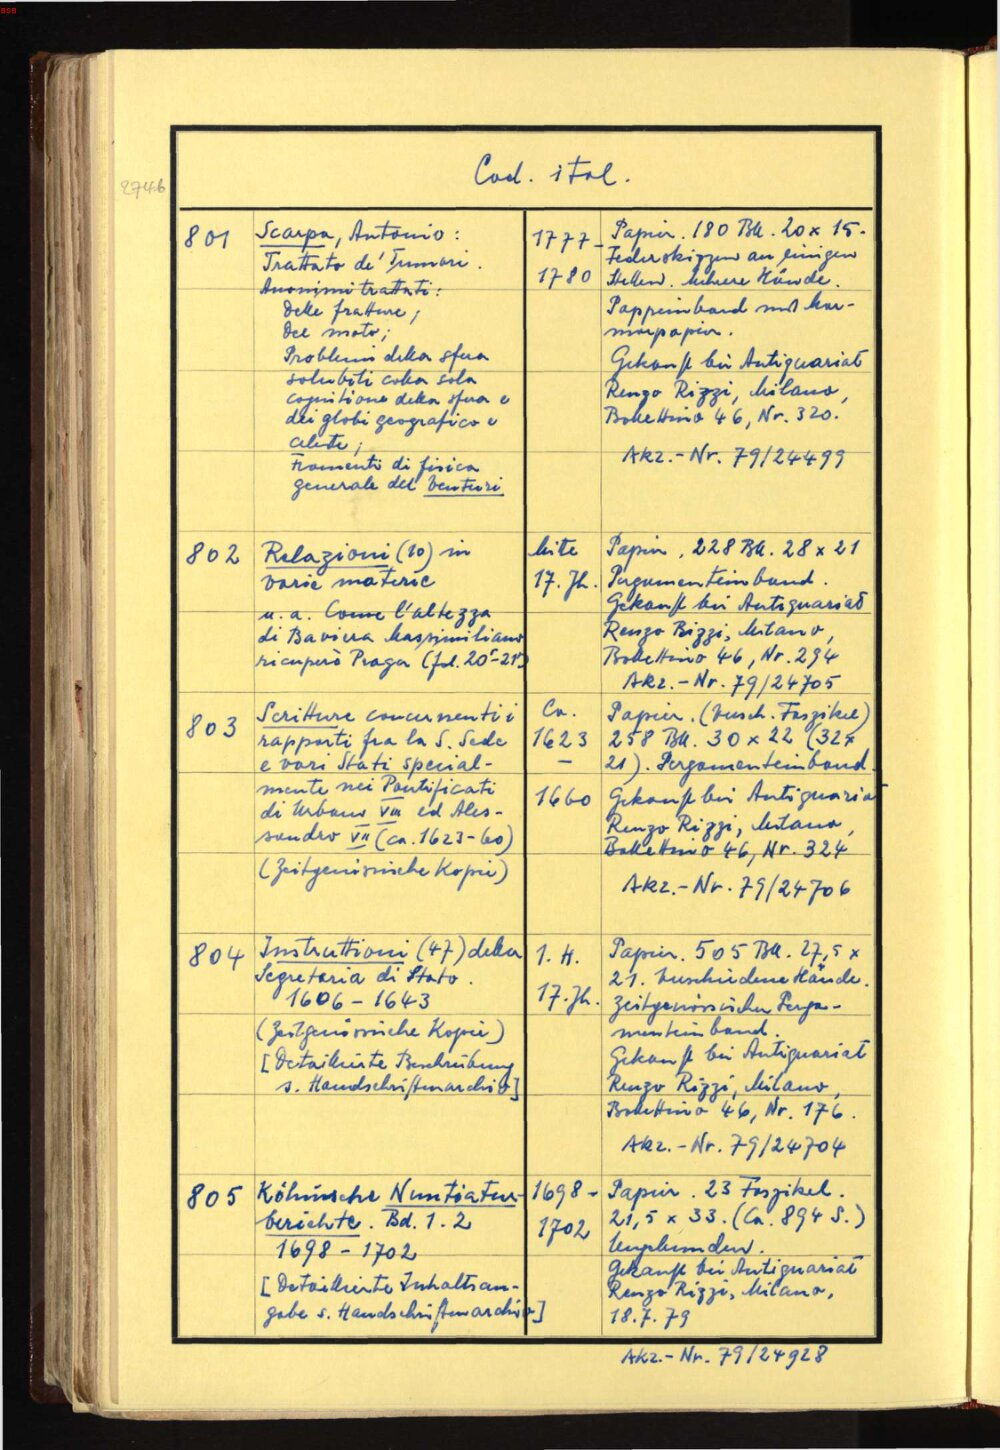 BSB
274b
Cod. ital.
801
Scarpa, Antonio:
Trattato de' Tumori.
Anonimi trattati:
Delle fratture;
Del moto;
Problemi della sfera
solubili colla sola
cognitione della sfera e
dei globi geografico e
celeste;
Framenti di fisica
generale del Venturi
1777-
1780
Papier. 180 Bll. 20 x 15.
Federskizzen an einigen
Stellen. Mehrere Hände.
Pappeinband mit Mar-
morpapier.
Gekauft bei Antiquariat
Renzo Rizzi, Milano,
Bollettino 46, Nr. 320.
Akz.-Nr. 79/24499
802
Relazioni (20) in
varie materie
u. a. Come l'altezza
di Baviera Massimiliano
ricuperò Praga (fol. 20r-21r)
Mitte
17. Jh.
Papier, 228 Bll. 28 x 21
Pergamenteinband.
Gekauft bei Antiquariat
Renzo Rizzi, Milano,
Bollettino 46, Nr. 294
Akz.-Nr. 79/24705
803
Scritture concernenti i
rapporti fra la S. Sede
e vari Stati special-
mente nei Pontificati
di Urbano VIII ed Ales-
sandro VII (ca. 1623-60)
(Zeitgenössische Kopie)
Ca.
1623
–
1660
Papier. (Versch. Faszikel)
258 Bll. 30 x 22 (32 x
21). Pergamenteinband.
Gekauft bei Antiquariat
Renzo Rizzi, Milano,
Bollettino 46, Nr. 324
Akz.-Nr. 79/24706
804
Instruttioni (47) della
Segretaria di Stato.
1606 - 1643
(Zeitgenössische Kopie)
[Detaillierte Beschreibung
s. Handschriftenarchiv]
1. H.
17. Jh.
Papier. 505 Bll. 27,5 x
21. Verschiedene Hände.
Zeitgenössischer Perga-
menteinband.
Gekauft bei Antiquariat
Renzo Rizzi, Milano,
Bollettino 46, Nr. 176.
Akz.-Nr. 79/24704
805
Kölnische Nuntiatur-
berichte. Bd. 1. 2
1698 - 1702
[Detaillierte Inhaltsan-
gabe s. Handschriftenarchiv]
1698 -
1702
Papier. 23 Faszikel.
21,5 x 33. (Ca. 894 S.)
Ungebunden.
Gekauft bei Antiquariat
Renzo Rizzi, Milano,
18.7.79
Akz.-Nr. 79/24928